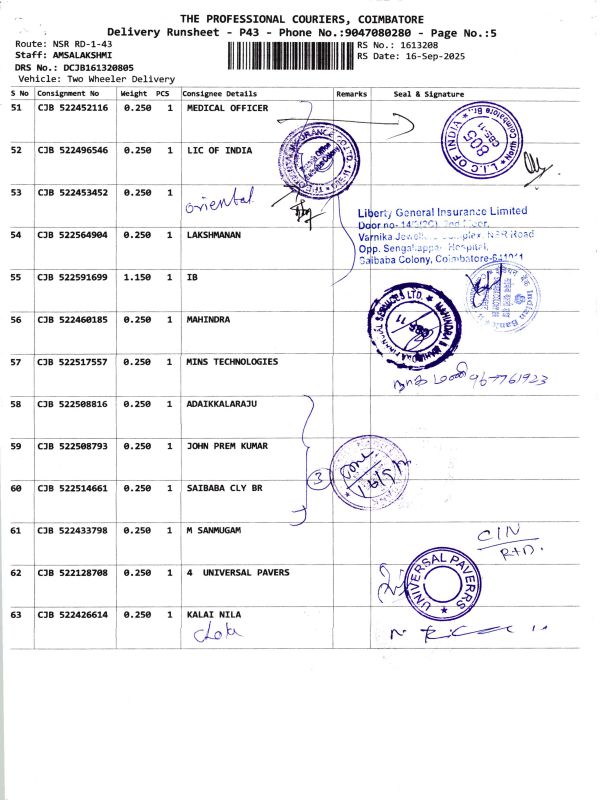 THE PROFESSIONAL COURIERS, COIMBATORE
Delivery Runsheet - P43 - Phone No.:9047080280 - Page No.:5
Route: NSR RD-1-43
RS No.: 1613208
Staff: AMSALAKSHMI
RS Date: 16-Sep-2025
DRS No.: DCJB161320805
Vehicle: Two Wheeler Delivery
S No Consignment No Weight PCS Consignee Details Remarks Seal & Signature
51 CJB 522452116 0.250 1 MEDICAL OFFICER
L.I.C OF INDIA
Coimbatore
CBS-11
805
52 CJB 522496546 0.250 1 LIC OF INDIA
53 CJB 522453452 0.250 1
oriental
Liberty General Insurance Limited
Door no- 2nd Floor,
Varnika Complex, NSR Road
Opp. Hospital,
Saibaba Colony, Coimbatore-641011
54 CJB 522564904 0.250 1 LAKSHMANAN
55 CJB 522591699 1.150 1 IB
Indian Bank
56 CJB 522460185 0.250 1 MAHINDRA
MAHINDRA & MAHINDRA FINANCIAL SERVICES LTD.
CBE 11
57 CJB 522517557 0.250 1 MINS TECHNOLOGIES
58 CJB 522508816 0.250 1 ADAIKKALARAJU
59 CJB 522508793 0.250 1 JOHN PREM KUMAR
3
60 CJB 522514661 0.250 1 SAIBABA CLY BR
61 CJB 522433798 0.250 1 M SANMUGAM
C/N
RTD.
62 CJB 522128708 0.250 1 4 UNIVERSAL PAVERS
UNIVERSAL PAVERRS
63 CJB 522426614 0.250 1 KALAI NILA